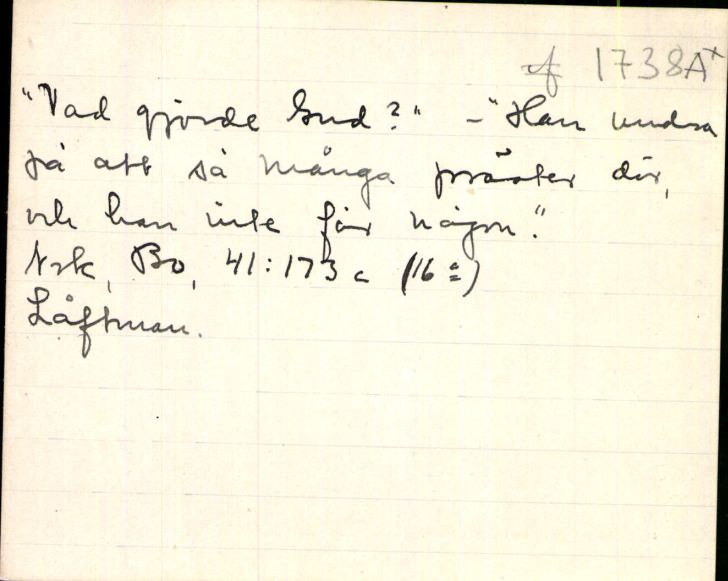 cf 1738A+
"Vad gjorde Gud?" – "Han undra
på att så många präster dör,
och han inte får någon."
Nxk, Bo, 41:173 c (16 a)
Låftman.